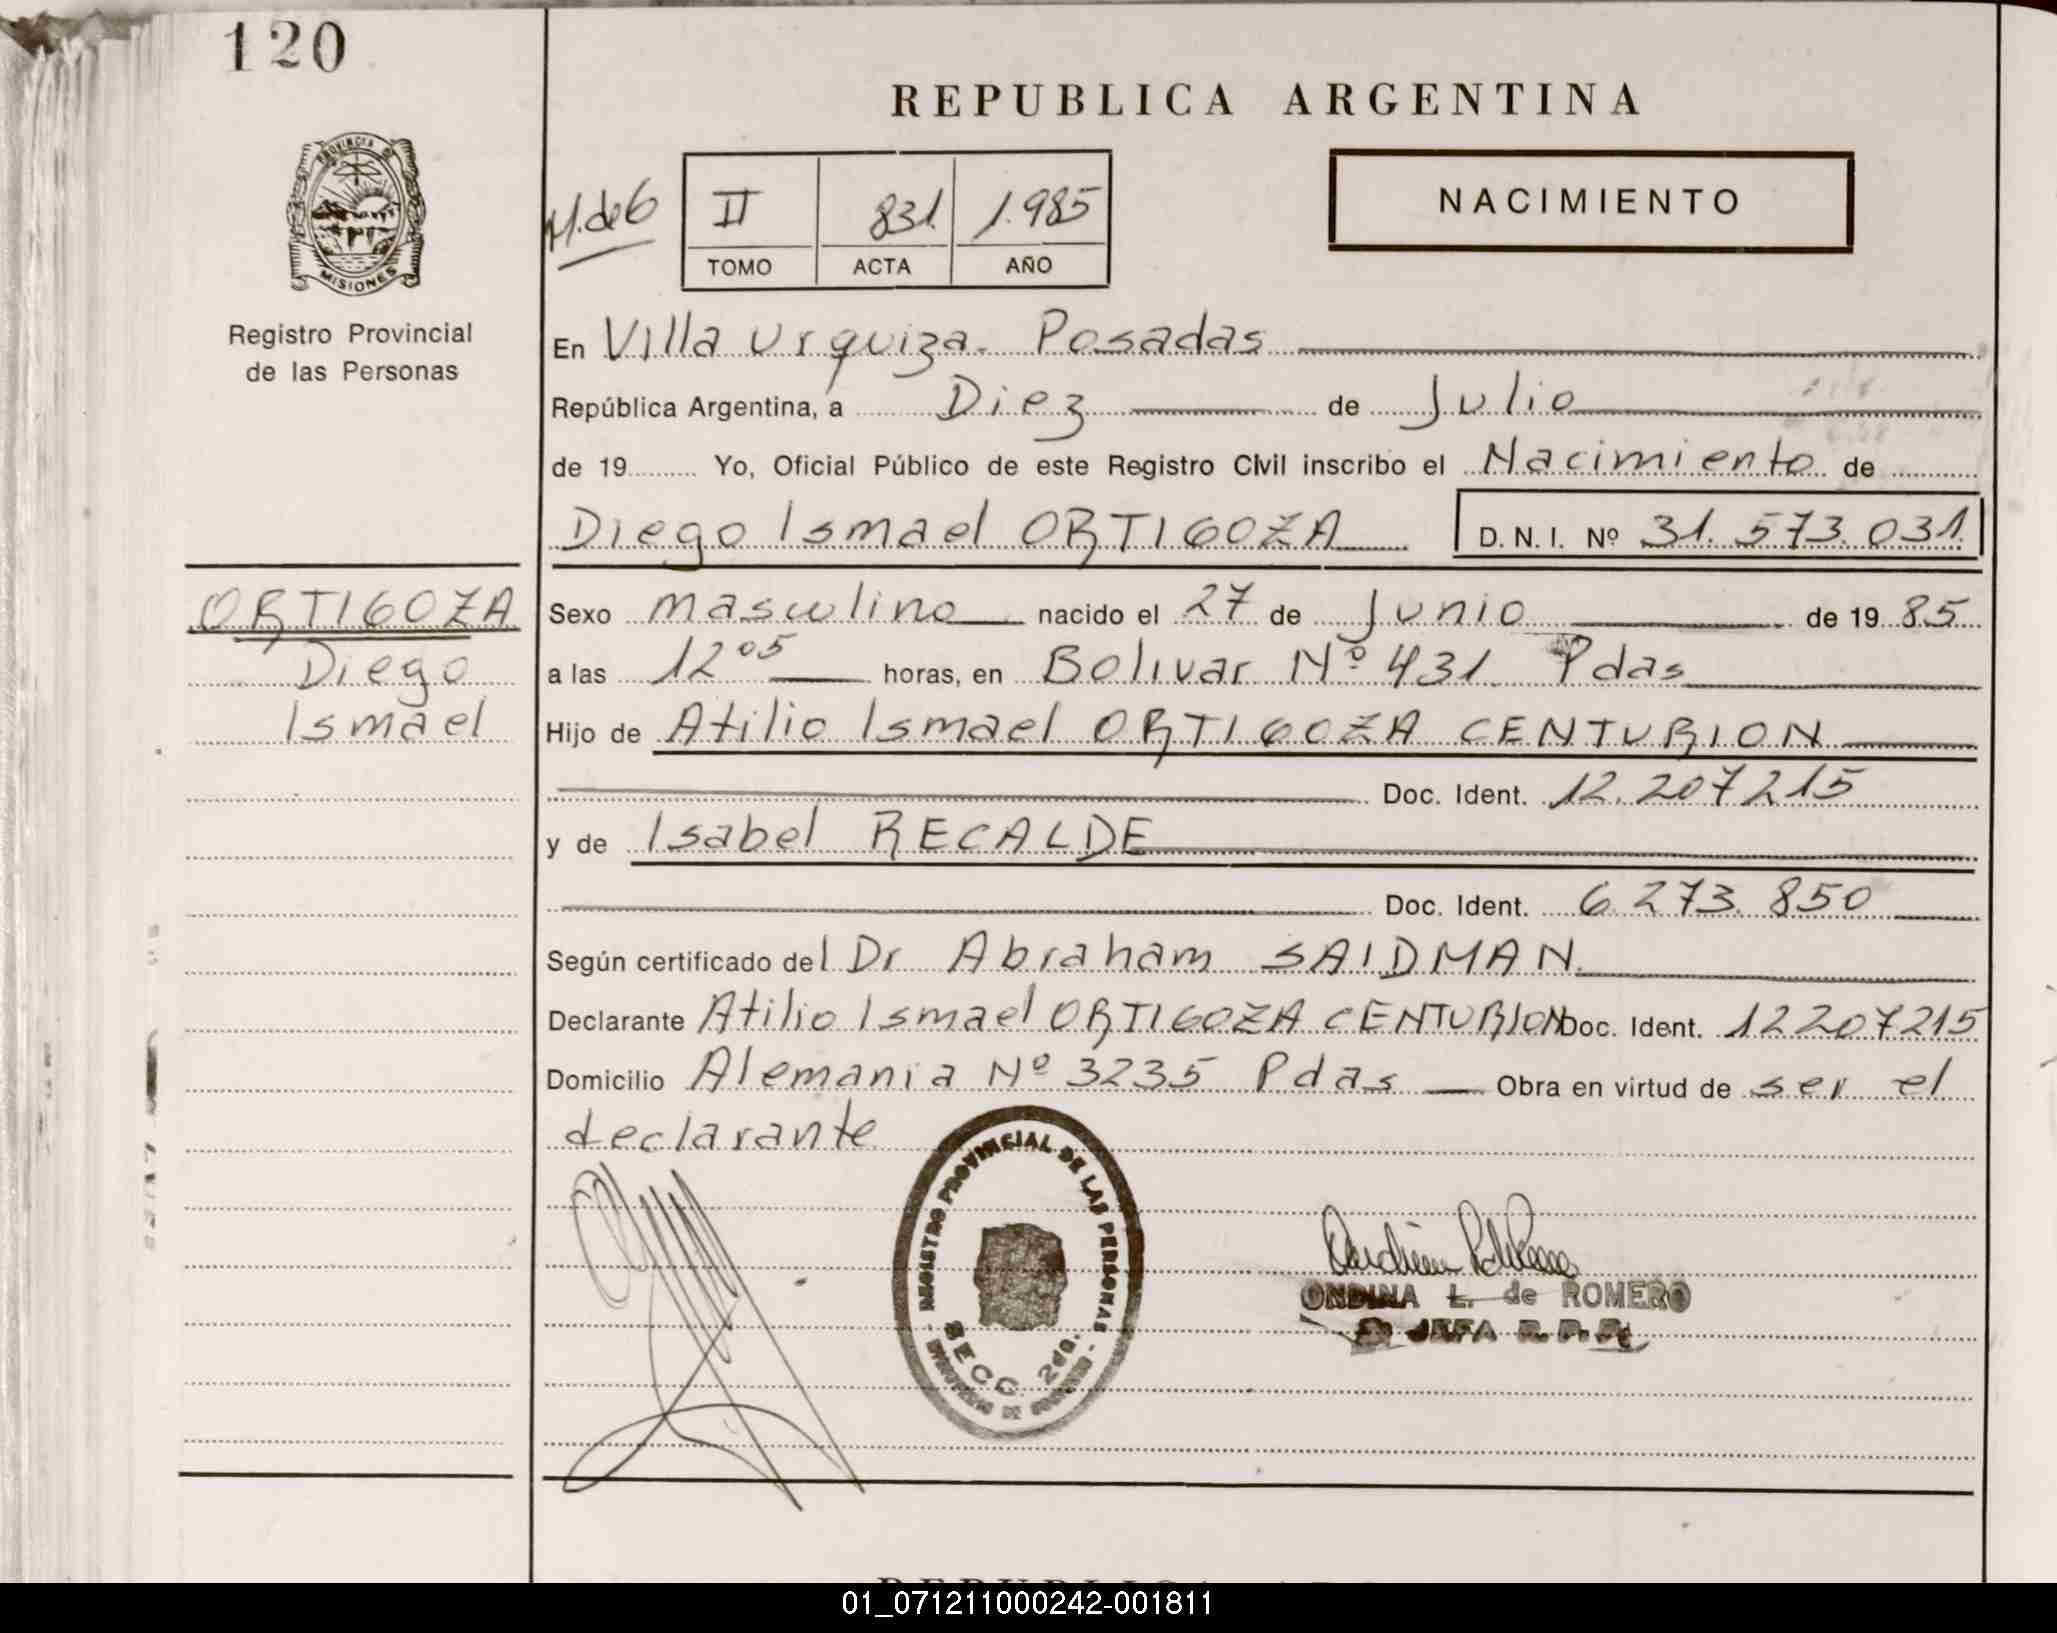 120
REPUBLICA ARGENTINA
PROVINCIA DE
MISIONES
Registro Provincial
de las Personas
II 831. 1.985
TOMO ACTA AÑO
NACIMIENTO
En Villa Urquiza. Posadas
República Argentina, a Diez de Julio
de 19 Yo, Oficial Público de este Registro Civil inscribo el Nacimiento de
Diego Ismael ORTIGOZA D. N. I. Nº 31.573.031.
ORTIGOZA
Diego
Ismael
Sexo masculino nacido el 27 de Junio de 19 85
a las 12 05 horas, en Bolivar Nº 431. Pdas
Hijo de Atilio Ismael ORTIGOZA CENTURION
Doc. Ident. 12.207215
y de Isabel RECALDE
Doc. Ident. 6.273.850
Según certificado del Dr Abraham SAIDMAN
Declarante Atilio Ismael ORTIGOZA CENTURION Doc. Ident. 12207215
Domicilio Alemania Nº 3235 Pdas Obra en virtud de ser el
declarante
REGISTRO PROVINCIAL DE LAS PERSONAS
SECC. 2da.
ONDINA L. de ROMERO
JEFA R. P. P.
01_071211000242-001811